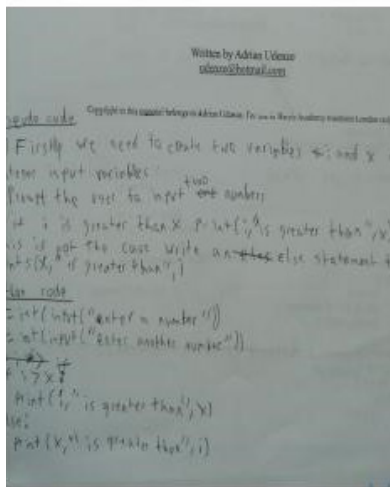 Written by Adrian Udenze
udenze@hotmail.com
Copyright in this material belongs to Adrian Udenze. For use in
code
Firstly we need to create two variables i and x
input variables
the user to input two numbers
i is greater than x print(i," is greater than",x)
is not the case write an else statement
(x," is greater than",i)
code
= int(input("enter a number"))
= int(input("enter another number"))
i > x
print(i," is greater than",x)
print(x," is greater than",i)